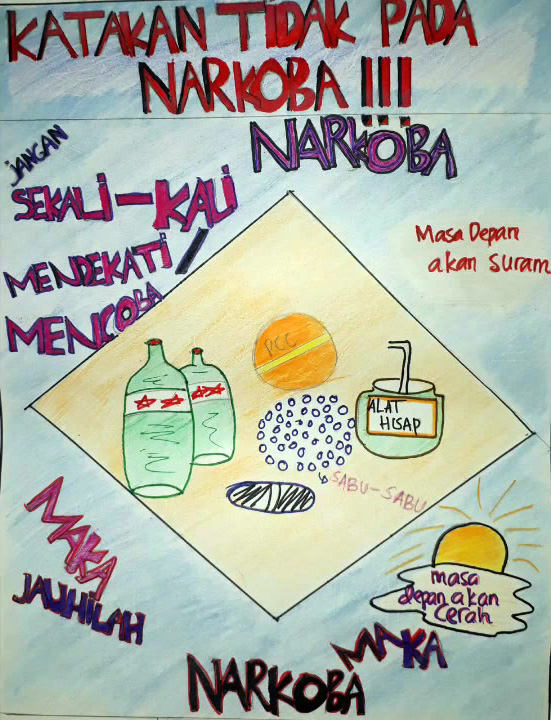 KATAKAN TIDAK PADA
NARKOBA !!!
JANGAN
SEKALI-KALI
MENDEKATI /
MENCOBA
NARKOBA
Masa Depan
akan suram
PCC
ALAT
HISAP
SABU-SABU
MAKA
JAUHILAH
NARKOBA
MAKA
masa
depan akan
Cerah